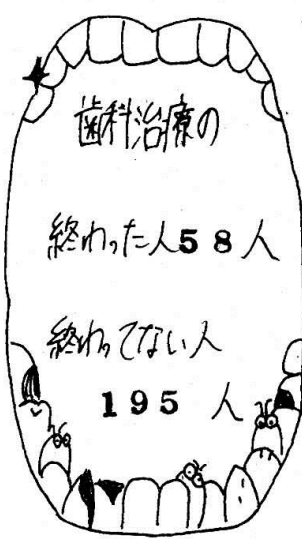 歯科治療の
終わった人58人
終わってない人
195人